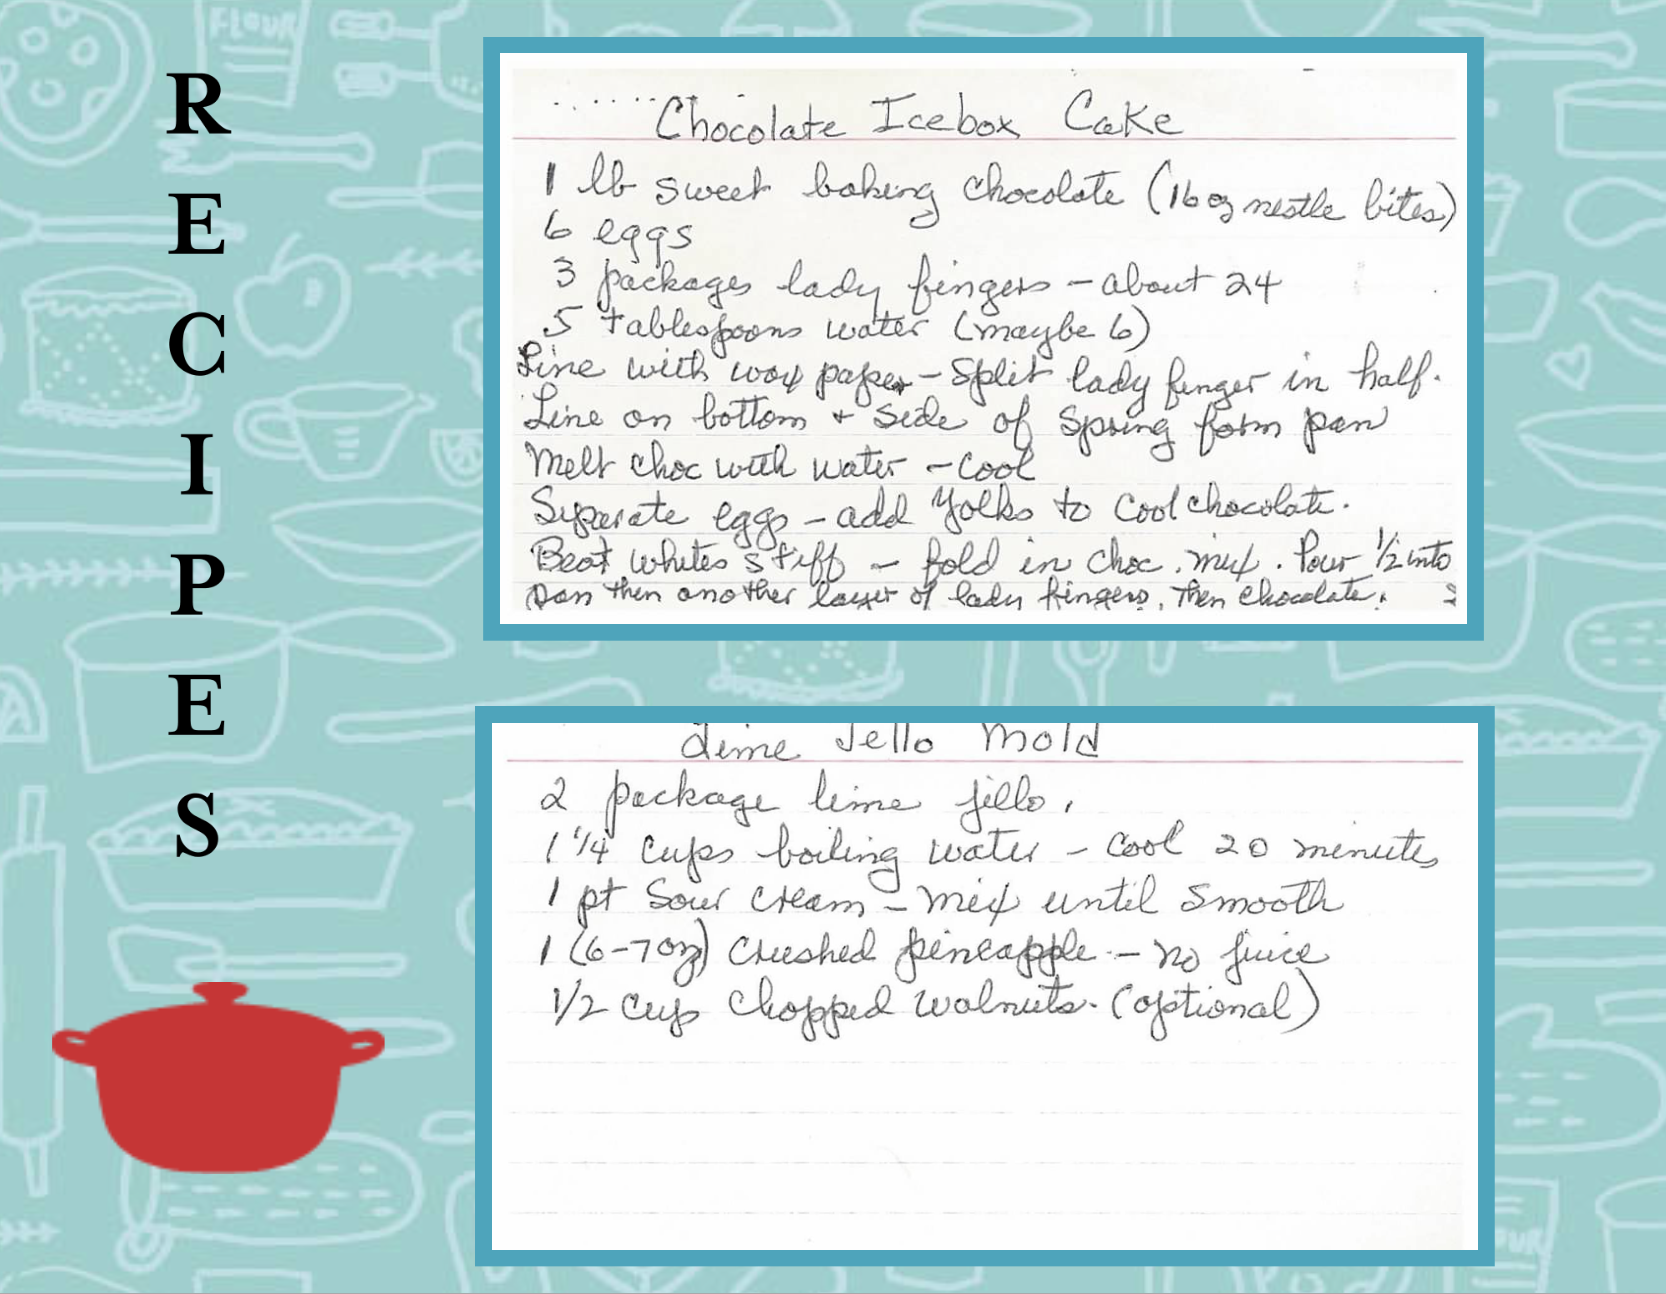 RECIPES
Chocolate Icebox Cake
1 lb sweet baking chocolate (16 oz nestle bites)
6 eggs
3 packages lady fingers - about 24
5 tablespoons water (maybe 6)
Line with wax paper - Split lady finger in half.
Line on bottom + side of Spring form pan
Melt choc with water - cool
Separate eggs - add yolks to cool chocolate.
Beat whites stiff - fold in choc. mix. Pour 1/2 into
pan then another layer of lady fingers, then chocolate.
Lime Jello Mold
2 package lime jello.
1 1/4 cups boiling water - cool 20 minutes
1 pt Sour cream - mix until smooth
1 (6-7 oz) crushed pineapple - no juice
1/2 cup chopped walnuts. (optional)
FLOUR